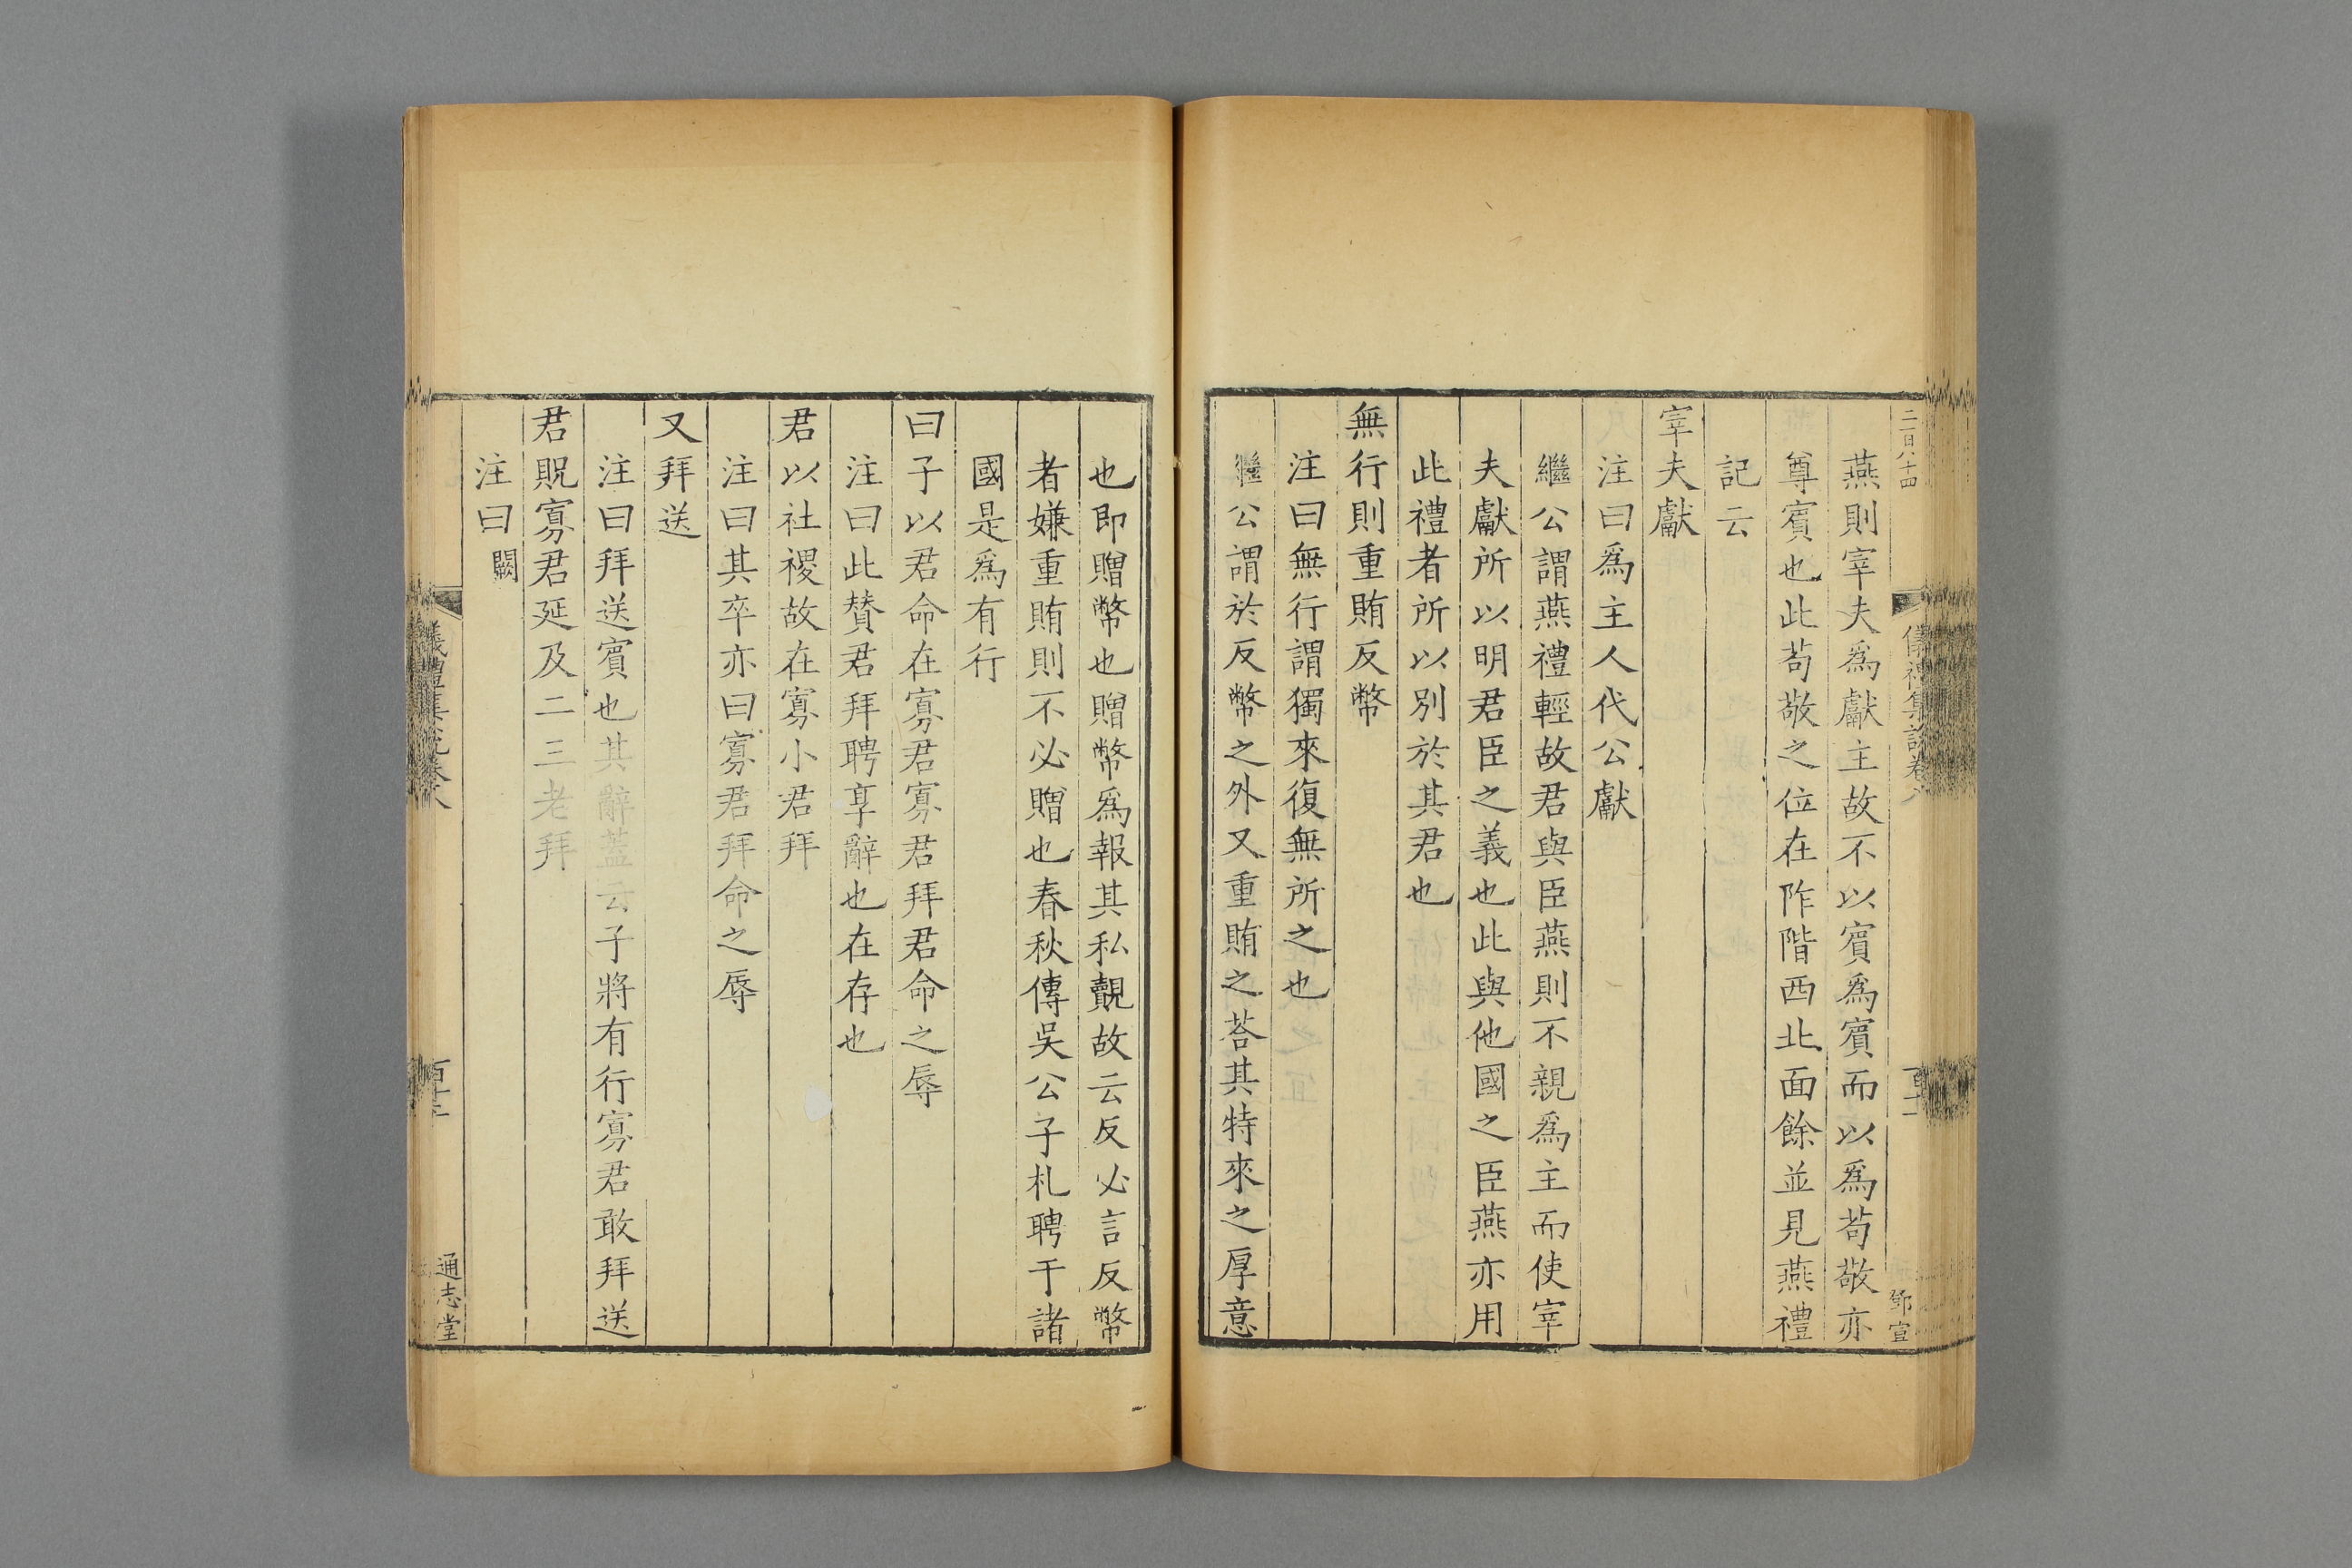 二百八十四
儀禮集說卷八
鄧宣
燕則宰夫爲獻主故不以賓爲賓而以爲茍敬亦
尊賓也此茍敬之位在阼階西北面餘並見燕禮
記云
宰夫獻
注曰爲主人代公獻
繼公謂燕禮輕故君與臣燕則不親爲主而使宰
夫獻所以明君臣之義也此與他國之臣燕亦用
此禮者所以別於其君也
無行則重賄反幣
注曰無行謂獨來復無所之也
繼公謂於反幣之外又重賄之荅其特來之厚意
也卽贈幣也贈幣爲報其私覿故云反必言反幣
者嫌重賄則不必贈也春秋傳吳公子札聘于諸
國是爲有行
曰子以君命在寡君寡君拜君命之辱
注曰此贊君拜聘享辭也在存也
君以社稷故在寡小君拜
注曰其卒亦曰寡君拜命之辱
又拜送
注曰拜送賓也其辭蓋云子將有行寡君敢拜送
君貺寡君延及二三老拜
注曰闕
儀禮集說卷八
通志堂